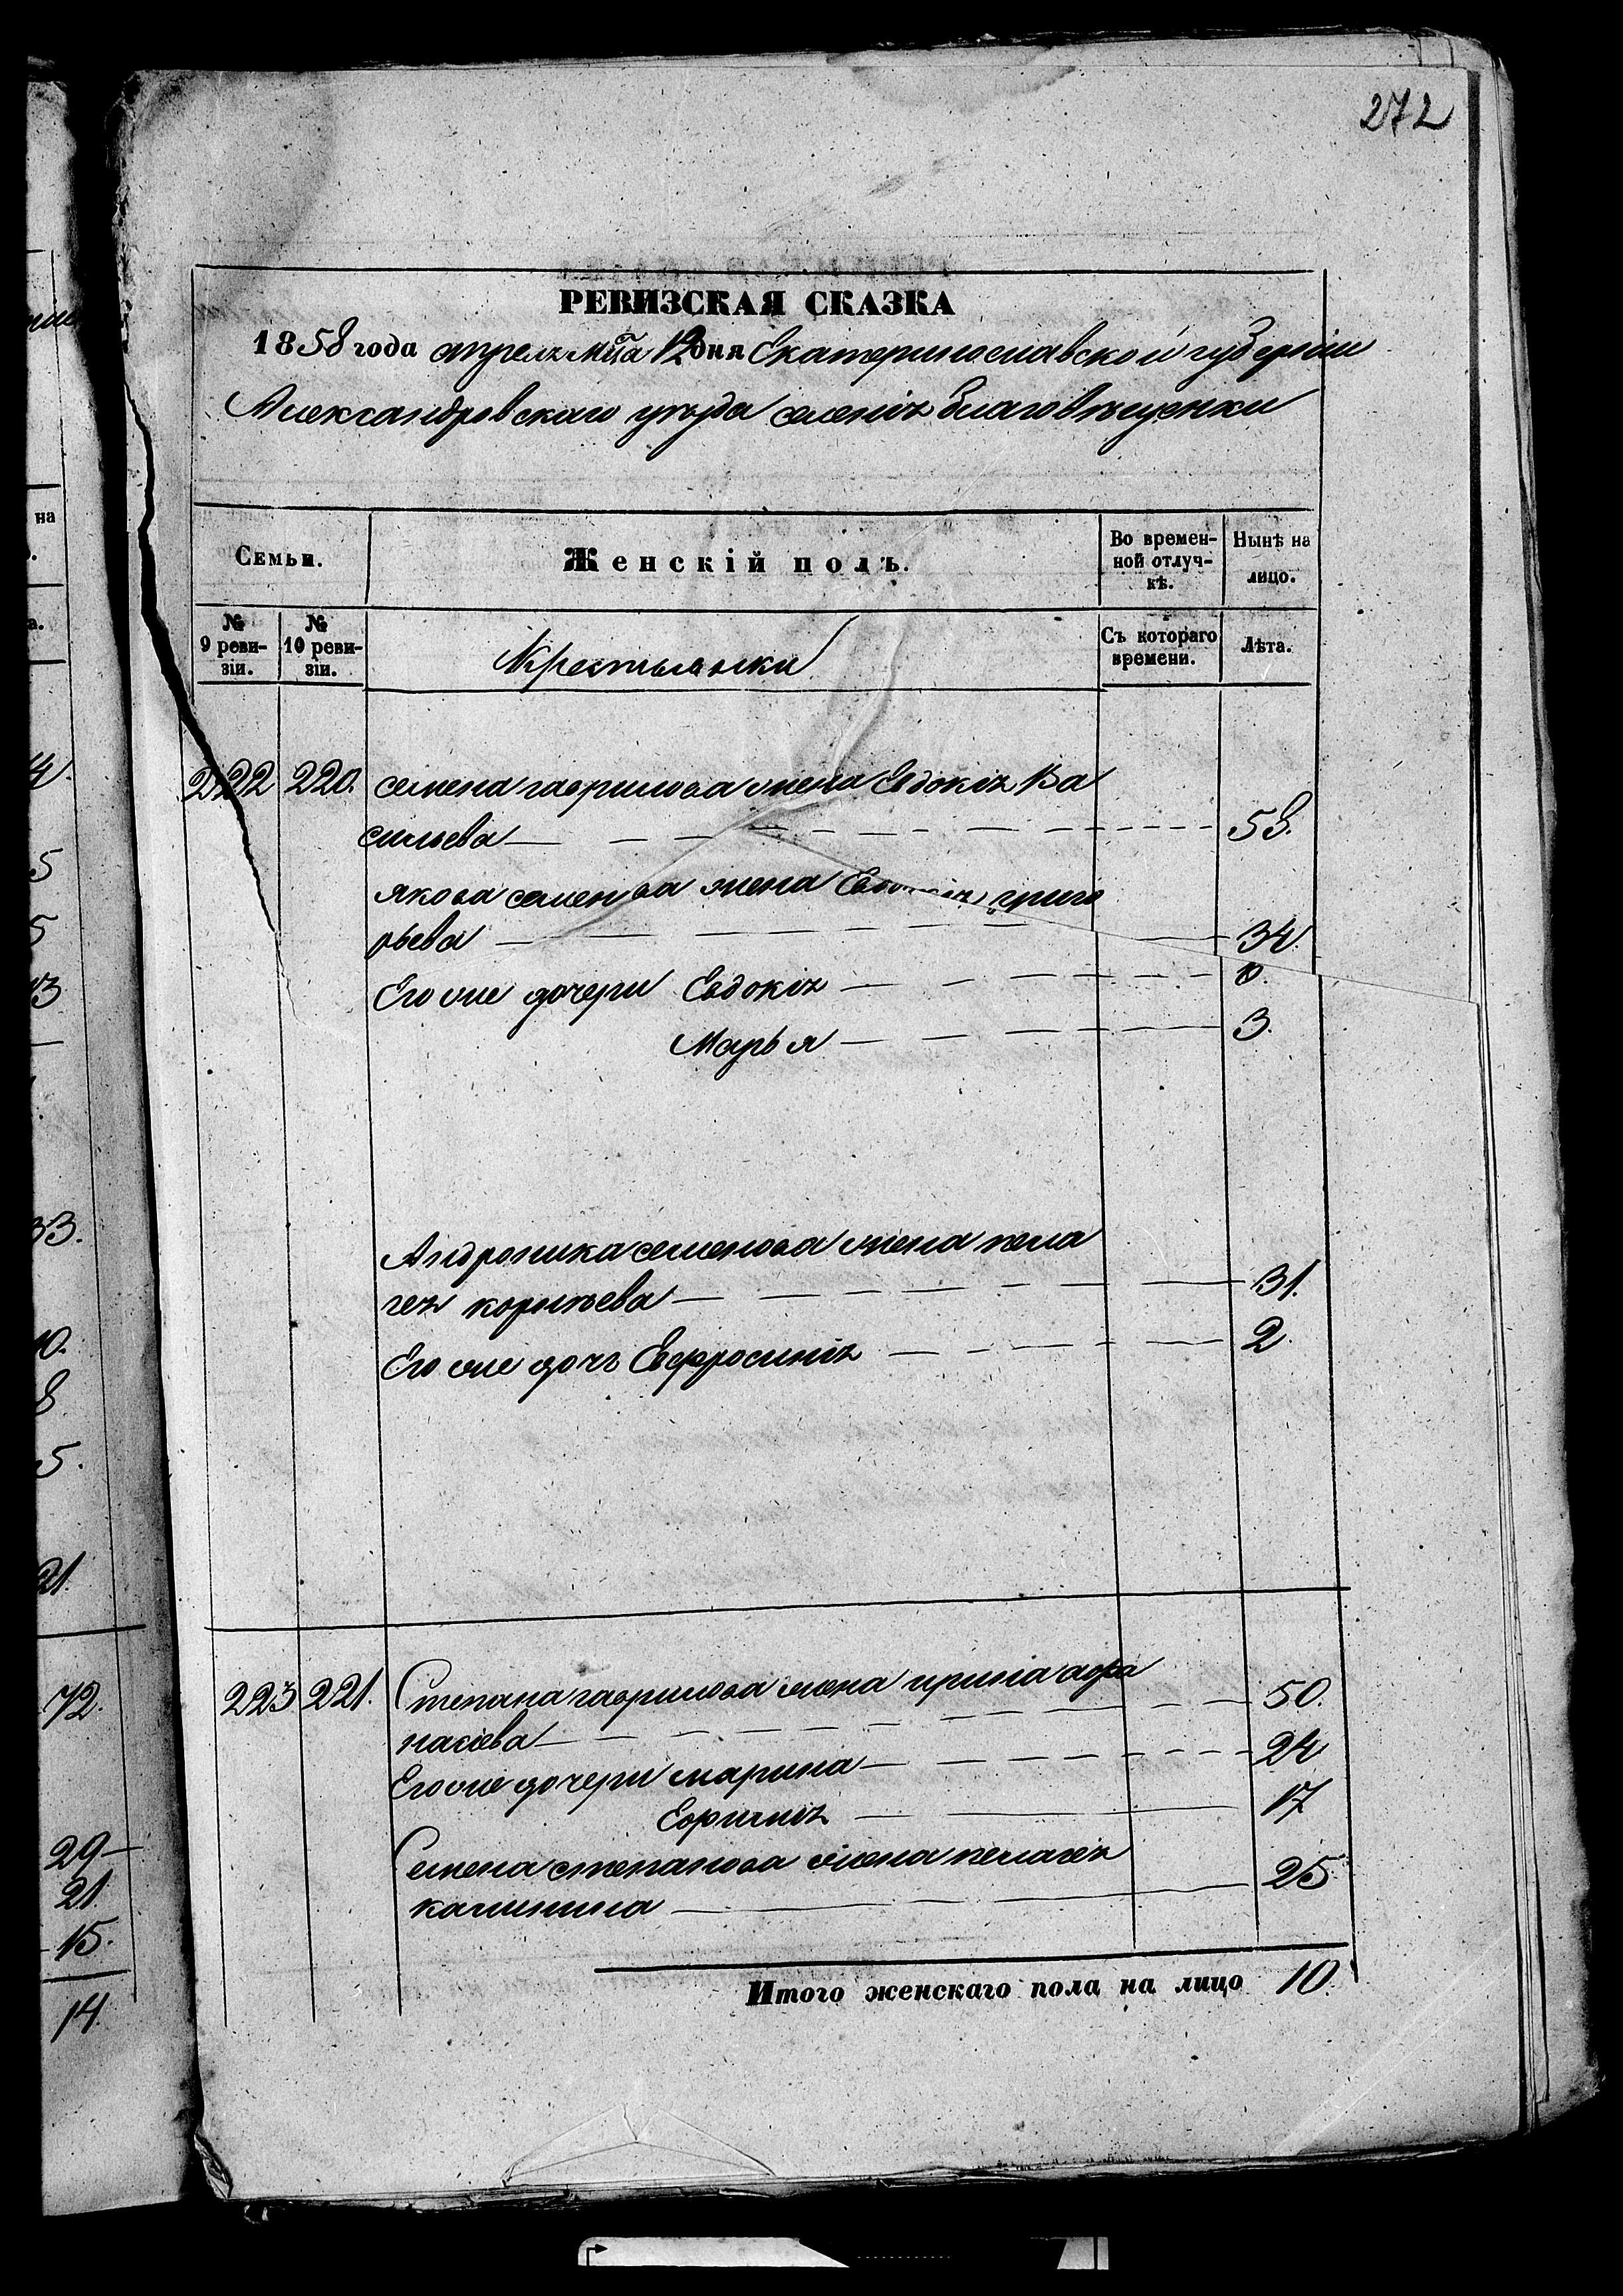 272
РЕВИЗСКАЯ СКАЗКА
1858 года апреля м̃ца 12 дня Екатеринославской губернiи
Александровскаго уѣзда селенiя благовѣщенки
Семьи.
Женскій полъ.
Во времен-
ной отлуч-
кѣ.
Нынѣ на
лицо.
№
9 реви-
зіи.
№
10 реви-
зіи.
Крестьянки
Съ котораго
времени.
Лѣта.
222 220. семена гаврилова жена Евдокiя Ва
сильева 58.
якова семенова жена Евдокiя григо
рьева 34
Его же дочери Евдокiя
Марья 3.
Андроника семенова жена пела
гея корнѣева 31.
Его же дочь Ефросинiя 2.
223 221. Степана гаврилова жена ирина афа
насiева 50.
Его же дочери марина 24
17
Семена степанова жена пелагея
калинина 25
Итого женскаго пола на лицо 10.
на
а.
5
5
13
33.
10.
8
5.
21.
72.
29
21.
15.
14.